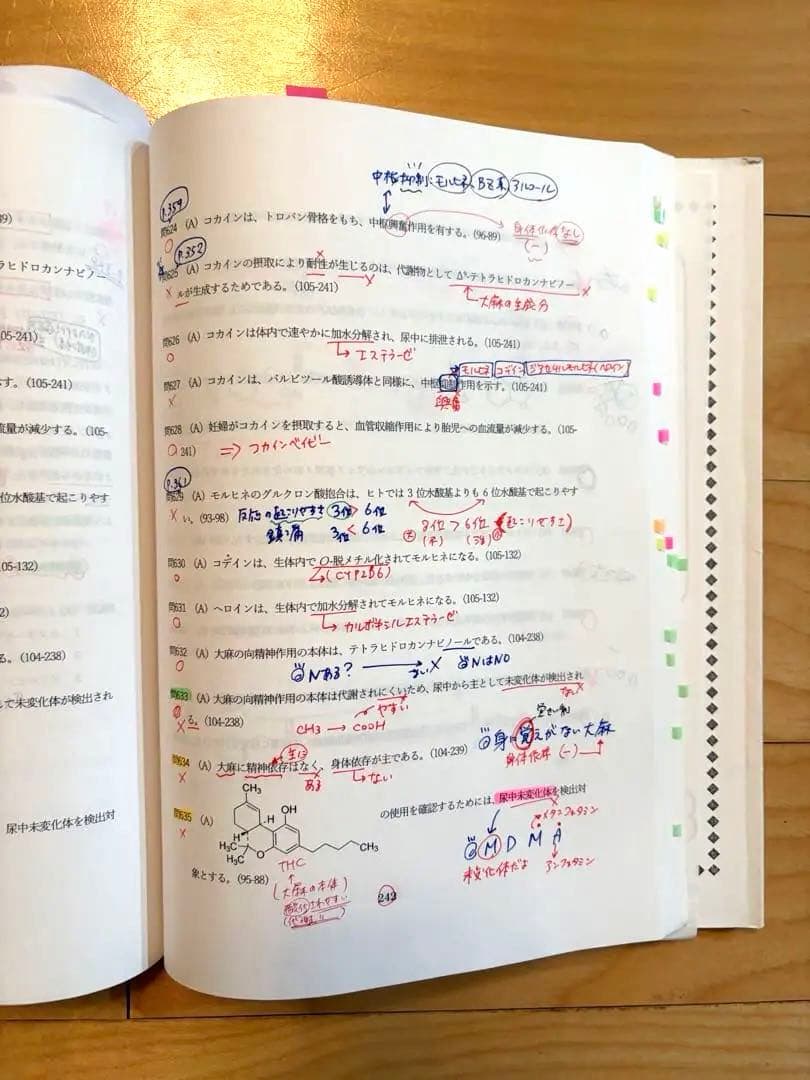 中枢抑制:モルヒネ、BZ系、アルコール
P.359
問624 (A) コカインは、トロパン骨格をもち、中枢興奮作用を有する。(96-89)
身体依存なし
(-)
P.352
問625 (A) コカインの摂取により耐性が生じるのは、代謝物として Δ⁹-テトラヒドロカンナビノー
ルが生成するためである。(105-241)
大麻の主成分
問626 (A) コカインは体内で速やかに加水分解され、尿中に排泄される。(105-241)
エステラーゼ
モルヒネ コデイン ジアセチルモルヒネ(ヘロイン)
問627 (A) コカインは、バルビツール酸誘導体と同様に、中枢抑制作用を示す。(105-241)
興奮
問628 (A) 妊婦がコカインを摂取すると、血管収縮作用により胎児への血流量が減少する。(105-
241)
⇒ コカインベイビー
P.361
問629 (A) モルヒネのグルクロン酸抱合は、ヒトでは 3 位水酸基よりも 6 位水酸基で起こりやす
い。(93-98)
反応の起こりやすさ 3位 > 6位
鎮痛 3位 < 6位
問630 (A) コデインは、生体内で O-脱メチル化されてモルヒネになる。(105-132)
(CYP2D6)
問631 (A) ヘロインは、生体内で加水分解されてモルヒネになる。(105-132)
カルボキシルエステラーゼ
問632 (A) 大麻の向精神作用の本体は、テトラヒドロカンナビノールである。(104-238)
Nある? → ない× NはNO
問633 (A) 大麻の向精神作用の本体は代謝されにくいため、尿中から主として未変化体が検出され
る。(104-238)
やすい
ない
CH3 → COOH
覚せい剤
身に覚えがない大麻
身体依存 (-)
問634 (A) 大麻に精神依存はなく、身体依存が主である。(104-239)
主に
ある
ない
問635 (A)
CH₃
OH
H
H
H₃C
H₃C
O
CH₃
の使用を確認するためには、尿中未変化体を検出対
象とする。(95-88)
メタンフェタミン
MDMA
未変化体だよ
アンフェタミン
THC
(大麻の本体)
酸化されやすい
242
ラヒドロカンナビノー
05-241)
-241)
す。(105-241)
流量が減少する。(105-
位水酸基で起こりやす
05-132)
2)
る。(104-238)
して未変化体が検出され
尿中未変化体を検出対